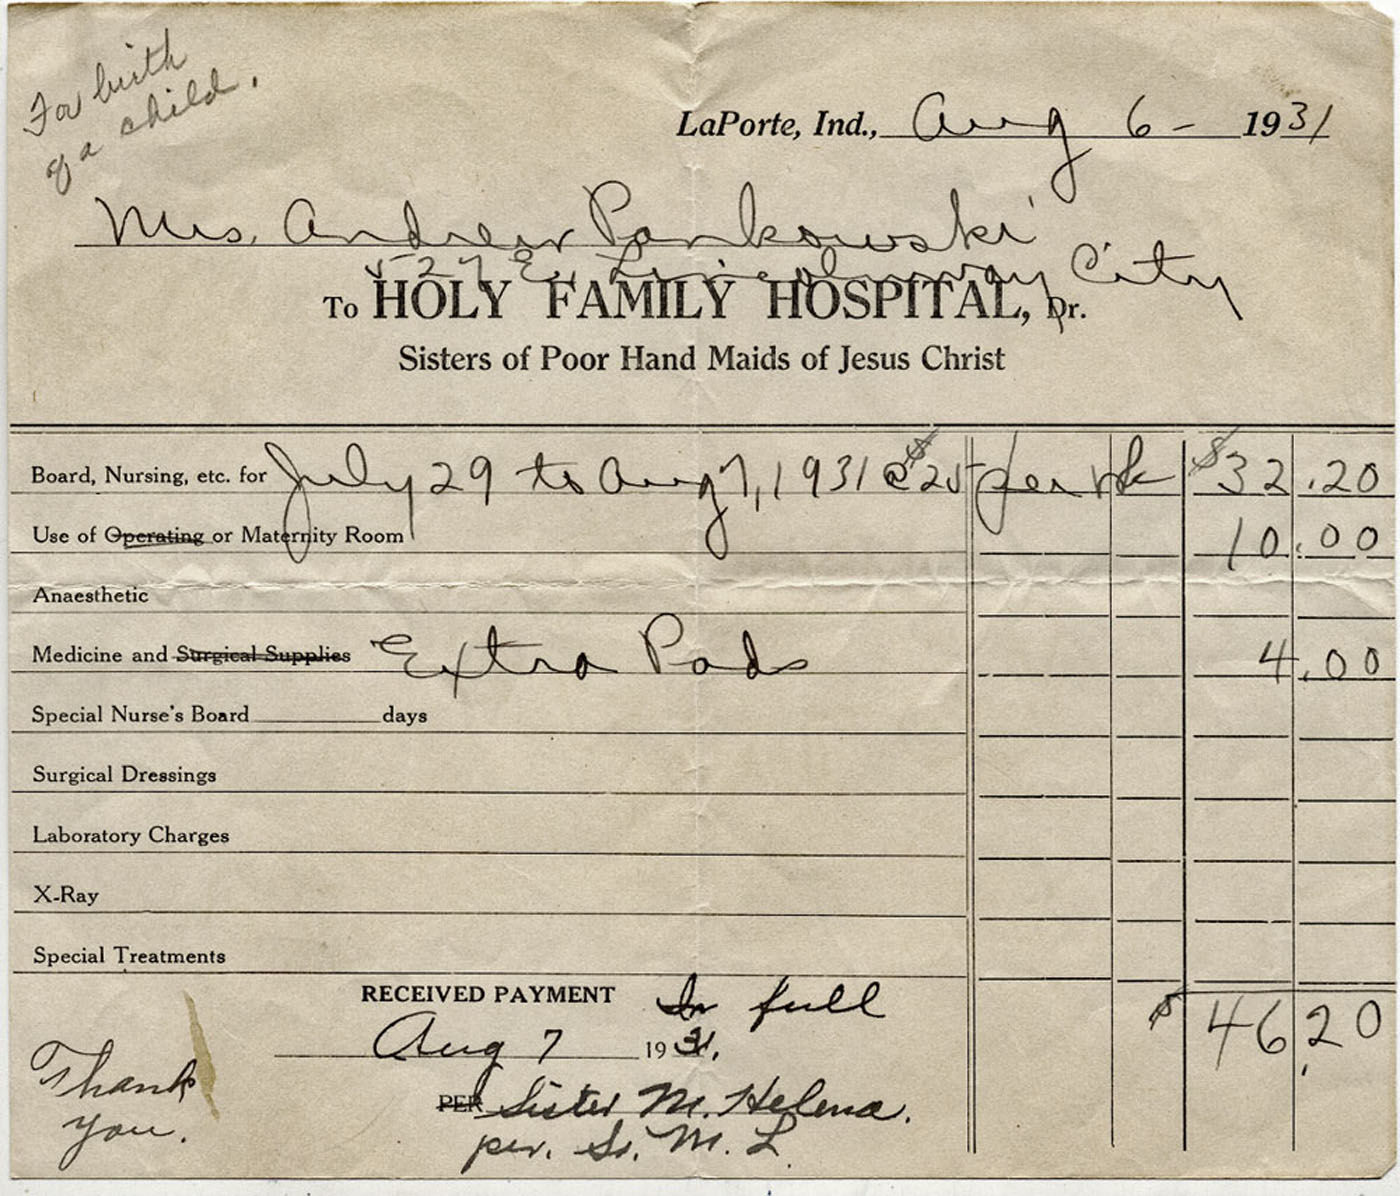 For birth
of a child.
LaPorte, Ind., Aug 6- 1931
Mrs. Andrew Pankowski
527 E. Lincolnway City
To HOLY FAMILY HOSPITAL, Dr.
Sisters of Poor Hand Maids of Jesus Christ
Board, Nursing, etc. for July 29 to Aug 7, 1931 @ $25 per wk $32.20
Use of Operating or Maternity Room 10.00
Anaesthetic
Medicine and Surgical Supplies Extra Pads 4.00
Special Nurse's Board ________ days
Surgical Dressings
Laboratory Charges
X-Ray
Special Treatments
RECEIVED PAYMENT In full
$46.20
Aug 7 1931.
Thank
you.
PER Sister M. Helena.
per. Sr. M. L.